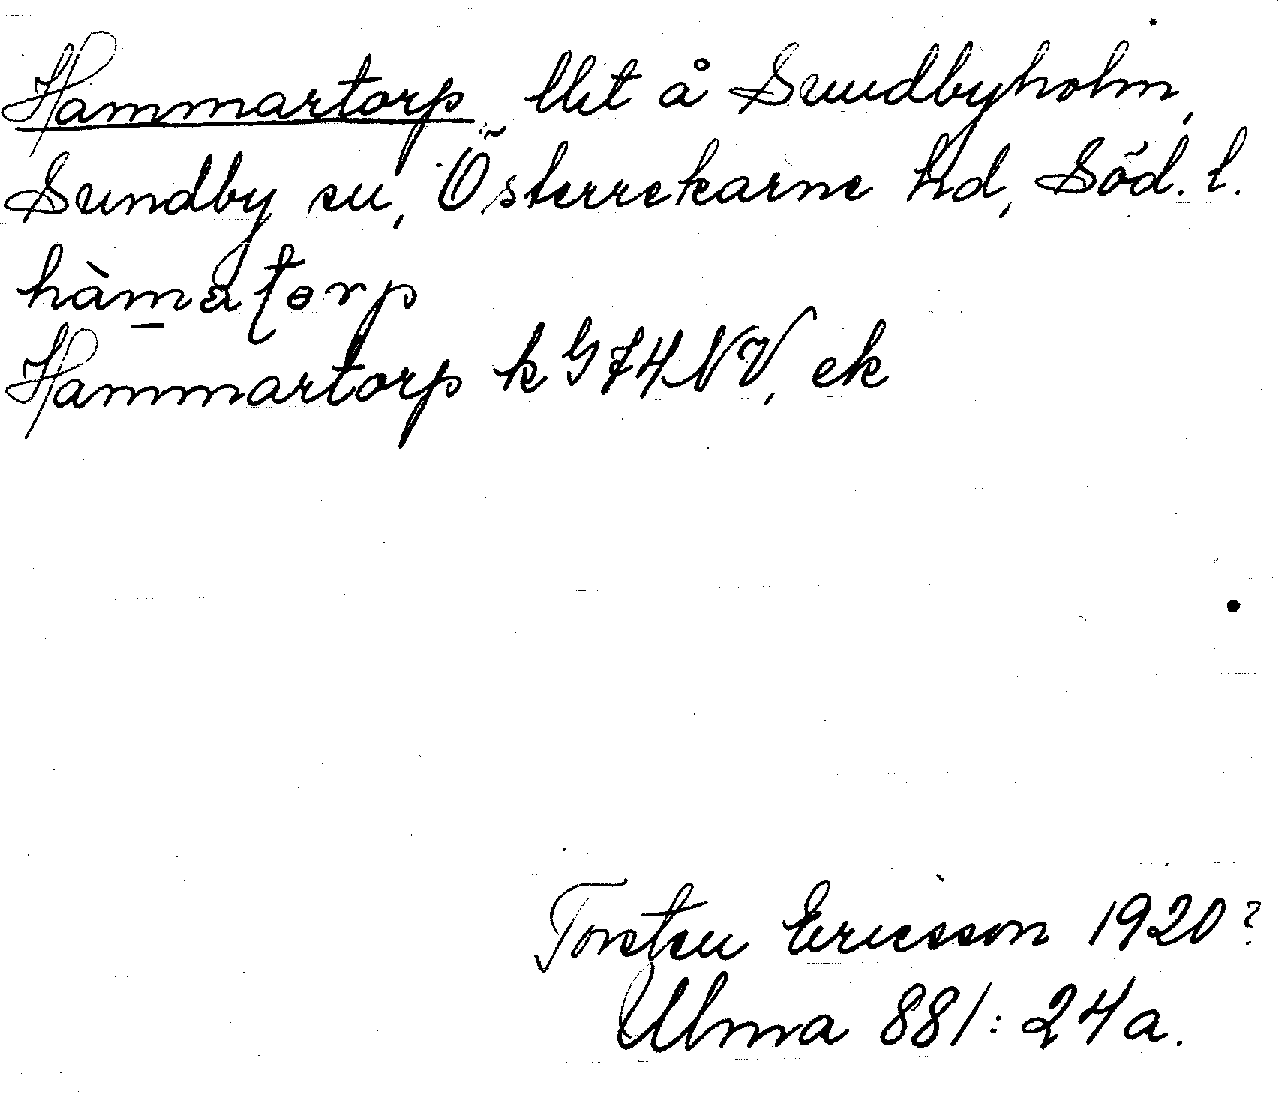 Hammartorp, Utit å Sundbyholm,
Sundby sn, Österrekarne hd, Söd. l.
hàmatorp
Hammartorp k G74NV, ek
Torsten Ericsson 1920?
Ulma 881:24a.